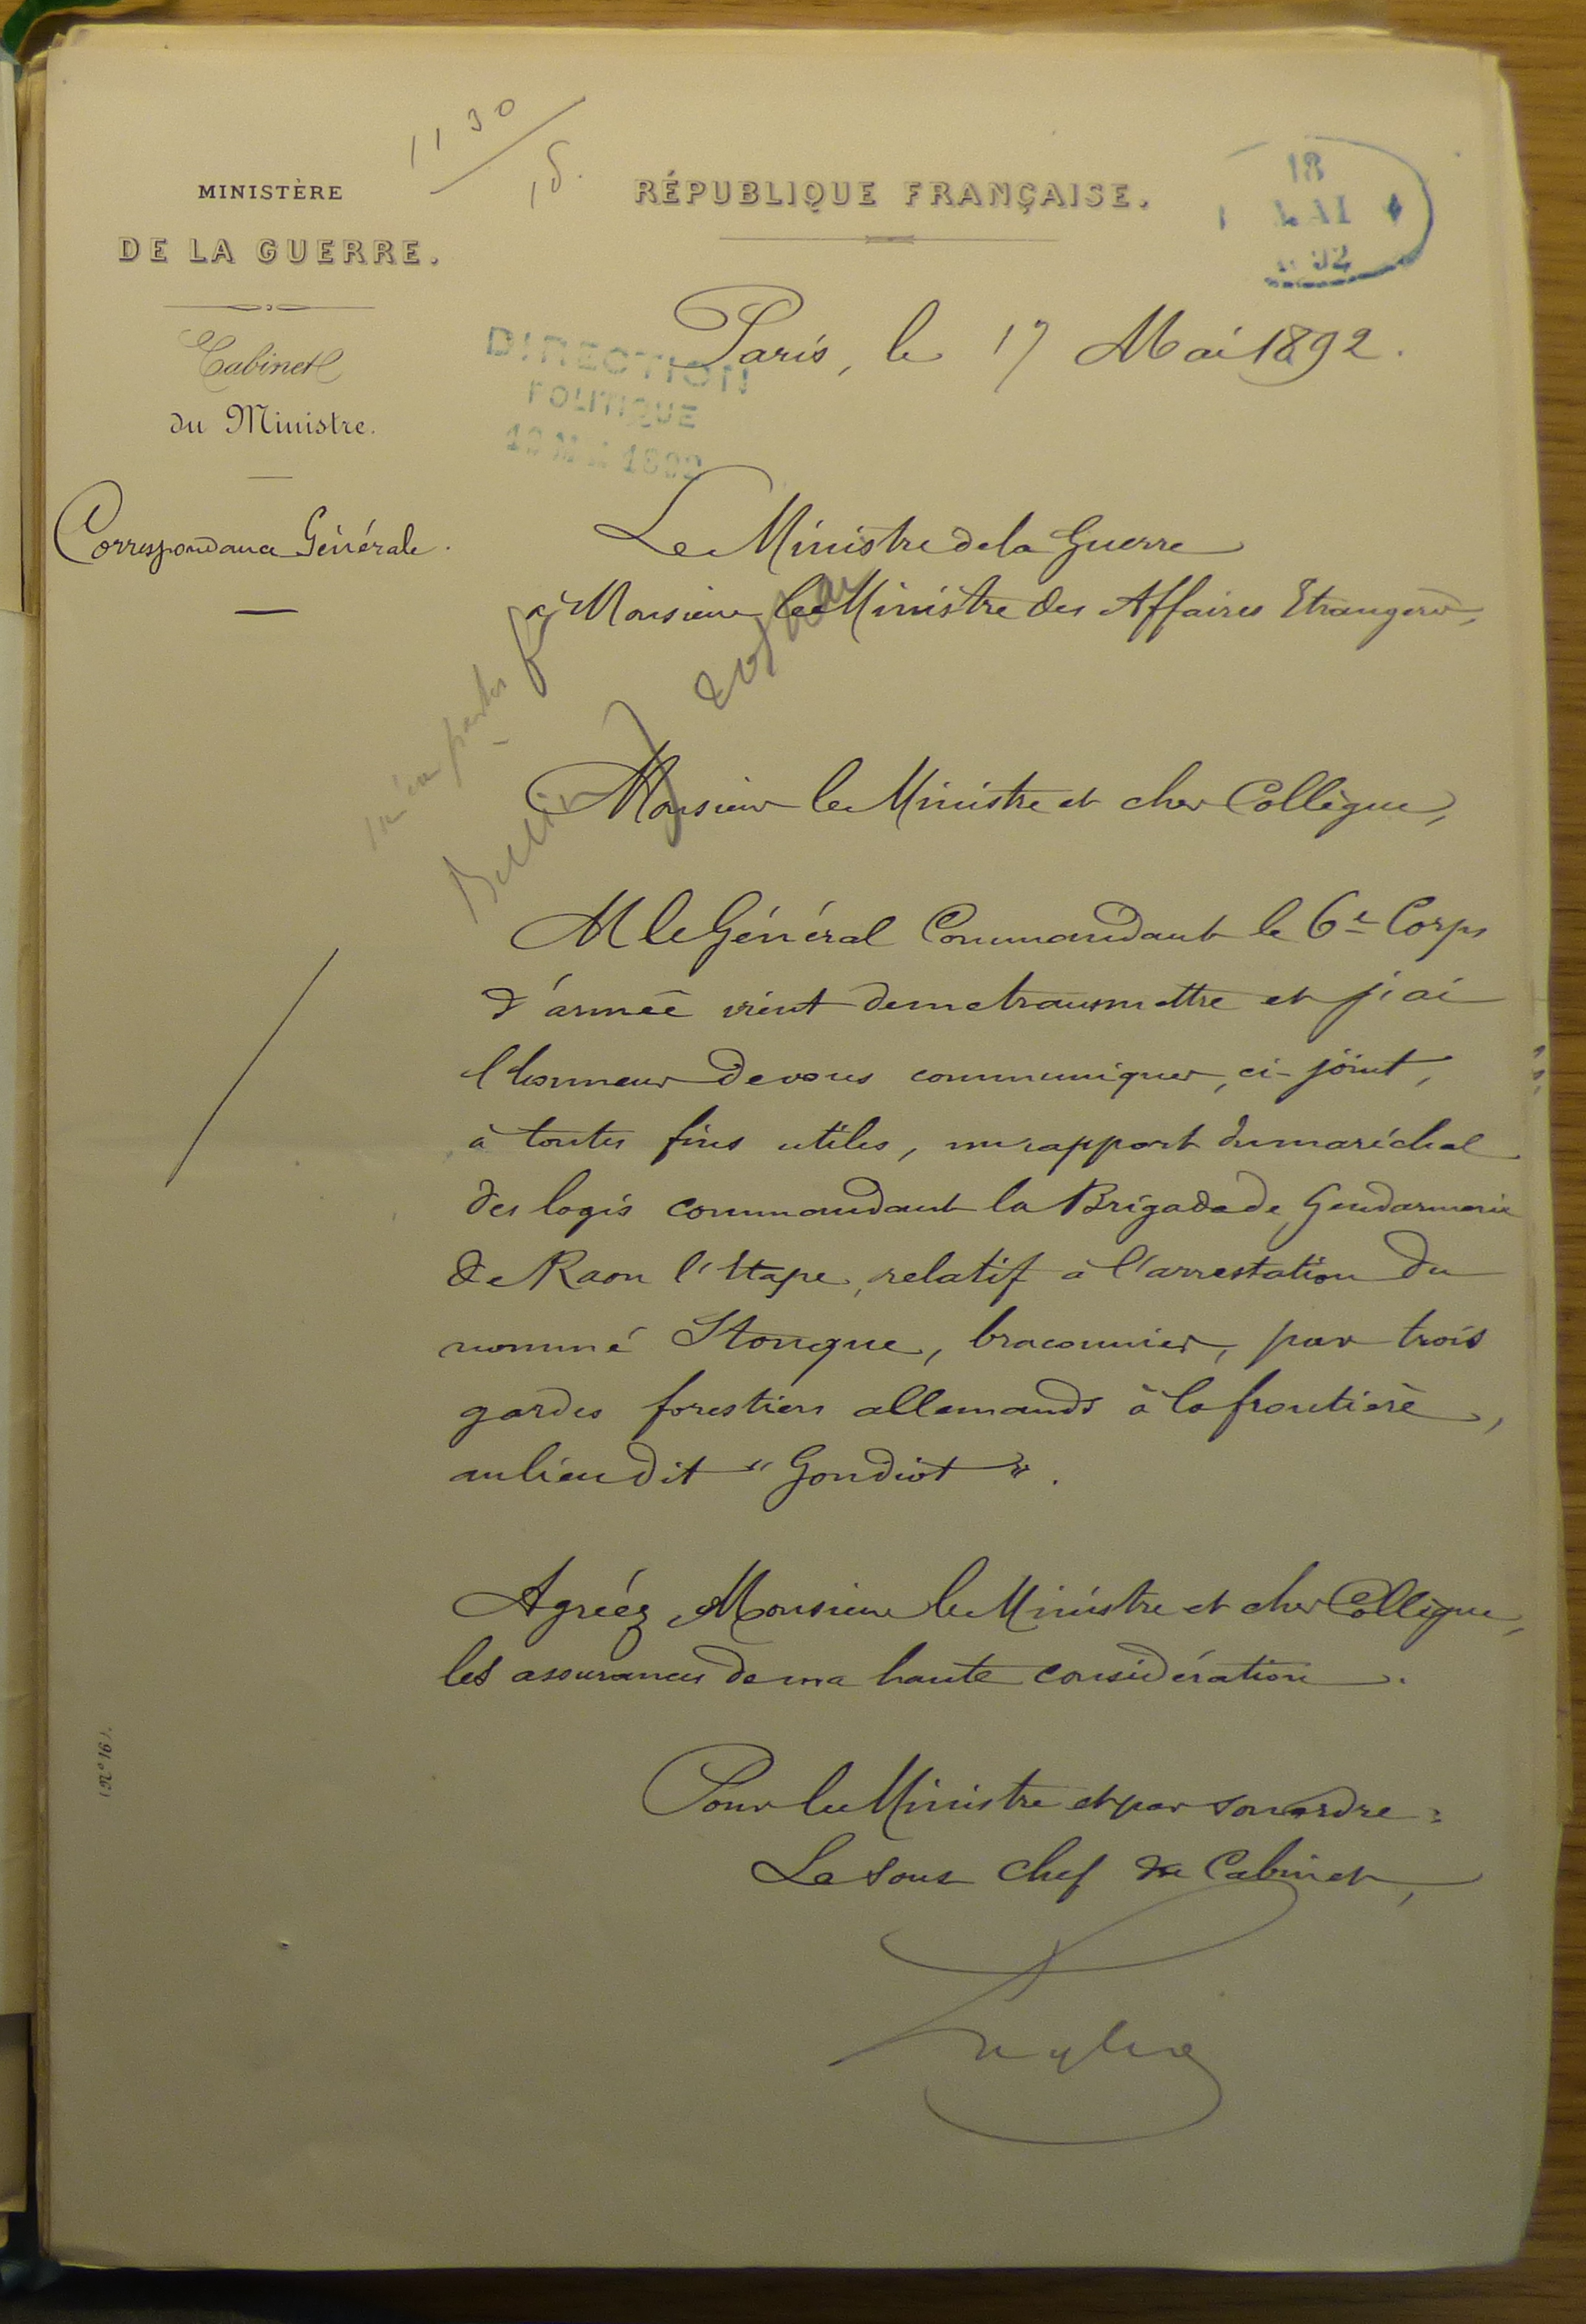 1130
15.
MINISTÈRE
DE LA GUERRE.
Cabinet
du Ministre.
Correspondance Générale.
RÉPUBLIQUE FRANÇAISE.
18
MAI
92
Paris, le 17 Mai 1892.
DIRECTION
POLITIQUE
Le Ministre de la Guerre
à Monsieur le Ministre des Affaires Etrangères,
Berlin
20 Mai
Monsieur le Ministre et cher Collègue,
M le Général Commandant le 6e Corps
d'armée vient de me transmettre et j'ai
l'honneur de vous communiquer, ci-joint,
à toutes fins utiles, un rapport du maréchal
des logis commandant la Brigade de Gendarmerie
de Raon l'Etape, relatif à l'arrestation du
nommé Stongue, braconnier, par trois
gardes forestiers allemands à la frontière,
au lieu dit "Gondiot".
Agréez, Monsieur le Ministre et cher Collègue,
les assurances de ma haute considération.
Pour le Ministre et par son ordre:
Le Sous chef de Cabinet,
(N° 16).